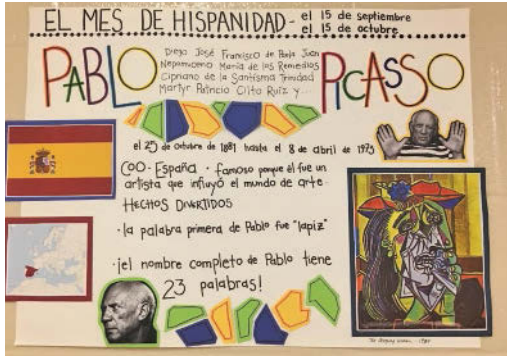 EL MES DE HISPANIDAD - el 15 de septiembre
el 15 de octubre
PABLO
Diego José Francisco de Paola Juan
Nepomiceno María de los Remedios
Cipriano de la Santísma Trinidad
Martyr Patricio Clito Ruiz y...
PICASSO
el 25 de octubre de 1881 hasta el 8 de abril de 1973
España · famoso porque él fue un
artista que influyó el mundo de arte.
HECHOS DIVERTIDOS
· la palabra primera de Pablo fue "lapiz"
· ¡el nombre completo de Pablo tiene
23 palabras!